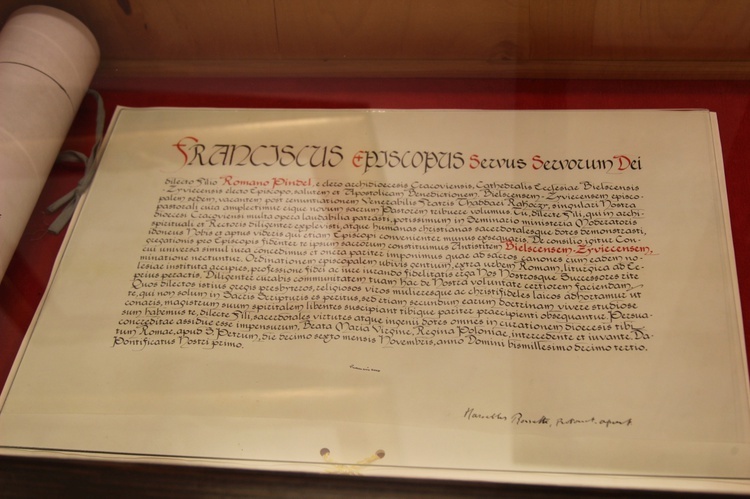 FRANCISCUS EPISCOPUS Servus Servorum Dei
dilecto Filio Romano Pindel, e clero archidioecesis Cracoviensis, Cathedralis Ecclesiae Bielscensis
Zyviecensis electo Episcopo, salutem et Apostolicam Benedictionem. Bielscensem-Zyviecensem episco-
palem sedem, vacantem post renuntiationem Venerabilis Fratris Thaddaei Rakoczy, singulari Nostra
pastorali cura amplectimur eique novum sacrum Pastorem tribuere volumus. Tu, dilecte Fili, qui in archi-
dioecesi Cracoviensi multa opera laudabilia patrasti, potissimum in Seminario ministeria Moderatoris
spiritualis et Rectoris diligenter explevisti, atque humanas christianas sacerdotalesque dotes demonstrasti,
idoneus Nobis et aptus videris qui etiam Episcopi convenienter munus exsequaris. De consilio igitur Con-
gregationis pro Episcopis fidenter te ipsum sacrorum constituimus Antistitem Bielscensem-Zyviecensem,
cui universa simul iura concedimus et onera pariter imponimus quae ad sacros canones cum eadem no-
minatione nectuntur. Ordinationem episcopalem ubivis gentium, extra urbem Romam, liturgica ab Ec-
lesiae instituta accipies, professione fidei ac iure iurando fidelitatis erga Nos Nostrosque Successores rite
prius peractis. Diligenter curabis communitatem tuam hac de Nostra voluntate certiorem faciendam.
Quos dilectos istius gregis presbyteros, religiosos viros mulieresque ac christifideles laicos adhortamur ut
te, qui non solum in Sacris Scripturis es peritus, sed etiam secundum earum doctrinam vivere studiose
conaris, magistrum suum spiritalem libentes suscipiant tibique pariter praecipienti obsequantur. Persua-
sum habemus te, dilecte Fili, sacerdotales virtutes atque ingenii dotes omnes in curationem dioecesis tibi
concreditae assidue esse impensurum, Beata Maria Virgine, Regina Poloniae, intercedente et iuvante. Da-
tum Romae, apud S. Petrum, die decimo sexto mensis Novembris, anno Domini bismillesimo decimo tertio,
Pontificatus Nostri primo.